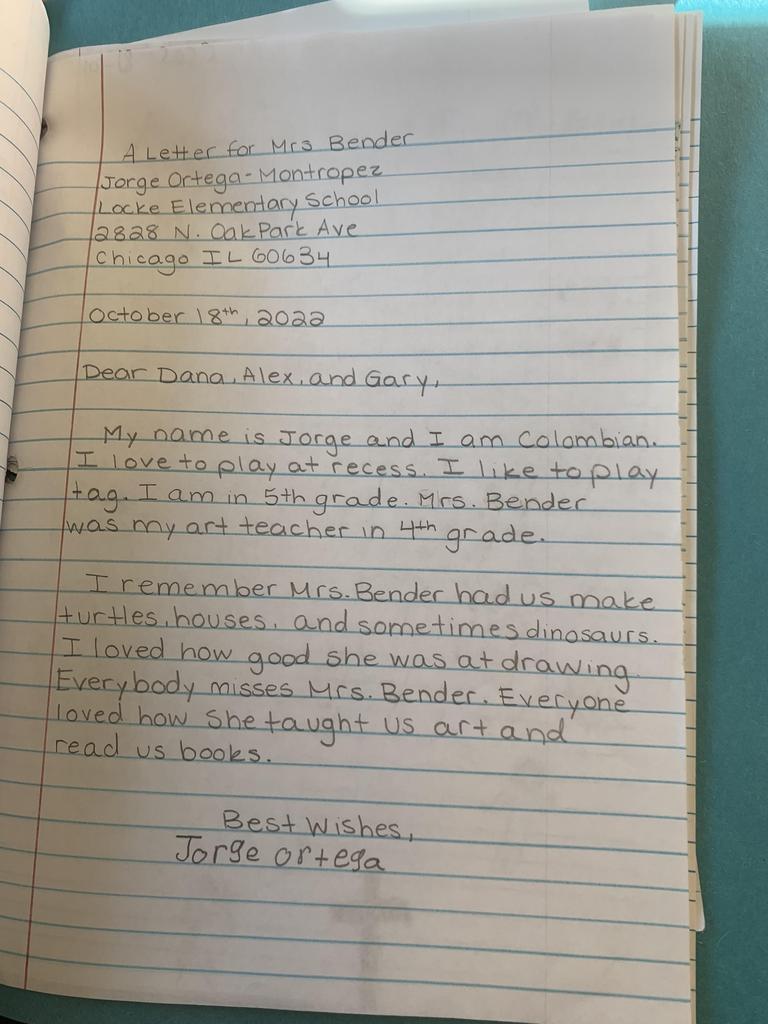 A Letter for Mrs Bender
Jorge Ortega-Montropez
Locke Elementary School
2828 N. Oak Park Ave
Chicago IL 60634
October 18th, 2022
Dear Dana, Alex, and Gary,
My name is Jorge and I am Colombian.
I love to play at recess. I like to play
tag. I am in 5th grade. Mrs. Bender
was my art teacher in 4th grade.
I remember Mrs. Bender had us make
turtles, houses, and sometimes dinosaurs.
I loved how good she was at drawing.
Everybody misses Mrs. Bender. Everyone
loved how she taught us art and
read us books.
Best Wishes,
Jorge Ortega